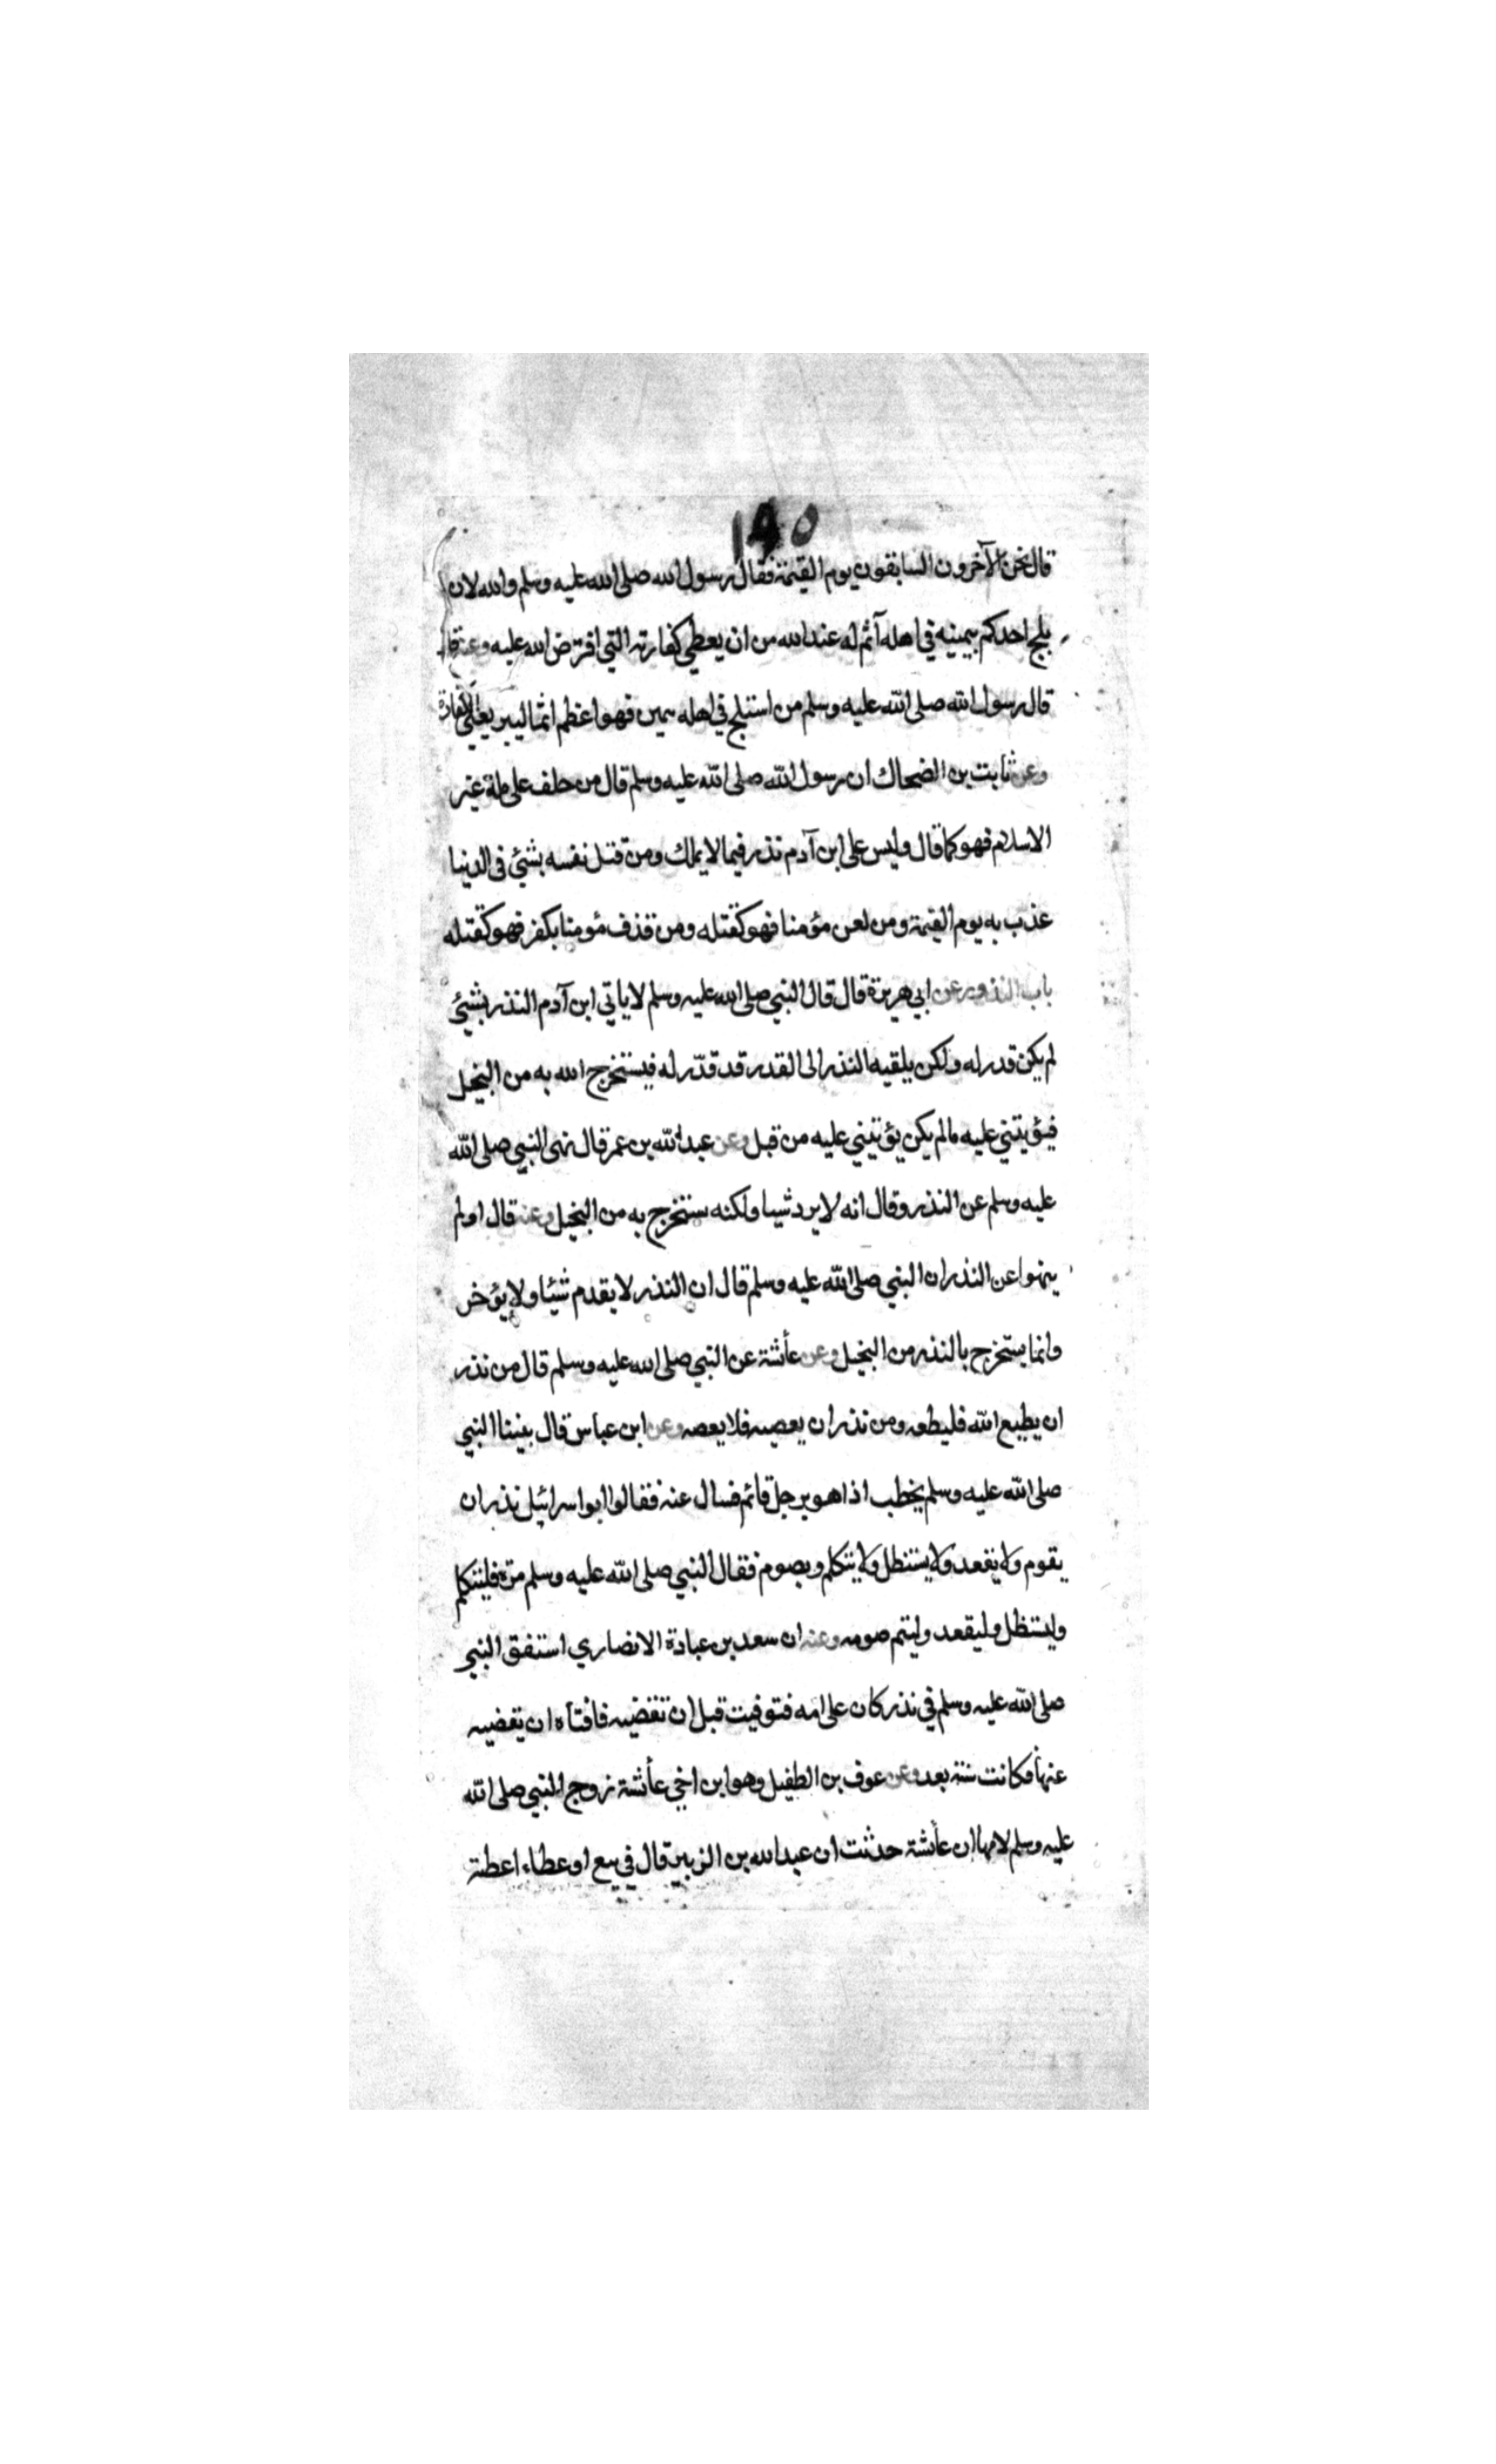 ١٩٥
قال نحن الآخرون السابقون يوم القيمة فقال رسول الله صلى الله عليه وسلم والله لان
يلج احدكم بيمينه في اهله آثم له عند الله من ان يعطي كفارته التي افترض الله عليه وعنه قال
قال رسول الله صلى الله عليه وسلم من استلج في اهله بيمين فهو اعظم اثما ليبر يعني الكفارة
وعن ثابت بن الضحاك ان رسول الله صلى الله عليه وسلم قال من حلف على ملة غير
الاسلام فهو كما قال وليس على ابن آدم نذر فيما لا يملك ومن قتل نفسه بشئ في الدنيا
عذب به يوم القيمة ومن لعن مؤمنا فهو كقتله ومن قذف مؤمنا بكفر فهو كقتله
باب النذور عن ابي هريرة قال قال النبي صلى الله عليه وسلم لا ياتي ابن آدم النذر بشئ
لم يكن قدر له ولكن يلقيه النذر الى القدر قد قدّر له فيستخرج الله به من البخيل
فيؤتيني عليه ما لم يكن يؤتيني عليه من قبل وعن عبد الله بن عمر قال نهى النبي صلى الله
عليه وسلم عن النذر وقال انه لا يرد شيا ولكنه يستخرج به من البخيل وعنه قال اولم
ينهوا عن النذر ان النبي صلى الله عليه وسلم قال ان النذر لا يقدم شيئا ولا يؤخر
وانما يستخرج بالنذر من البخيل وعن عائشة عن النبي صلى الله عليه وسلم قال من نذر
ان يطيع الله فليطعه ومن نذر ان يعصيه فلا يعصه وعن ابن عباس قال بيننا النبي
صلى الله عليه وسلم يخطب اذا هو برجل قائم فسال عنه فقالوا ابو اسرائيل نذر ان
يقوم ولا يقعد ولا يستظل ولا يتكلم ويصوم فقال النبي صلى الله عليه وسلم مرّه فليتكلم
وليستظل وليقعد وليتم صومه وعنه ان سعد بن عبادة الانصاري استفتى النبي
صلى الله عليه وسلم في نذر كان على امه فتوفيت قبل ان تقضيه فافتاه ان يقضيه
عنها فكانت سنة بعد وعن عوف بن الطفيل وهو ابن اخي عائشة زوج النبي صلى الله
عليه وسلم لامها ان عائشة حدثت ان عبد الله بن الزبير قال في بيع او عطاء اعطته